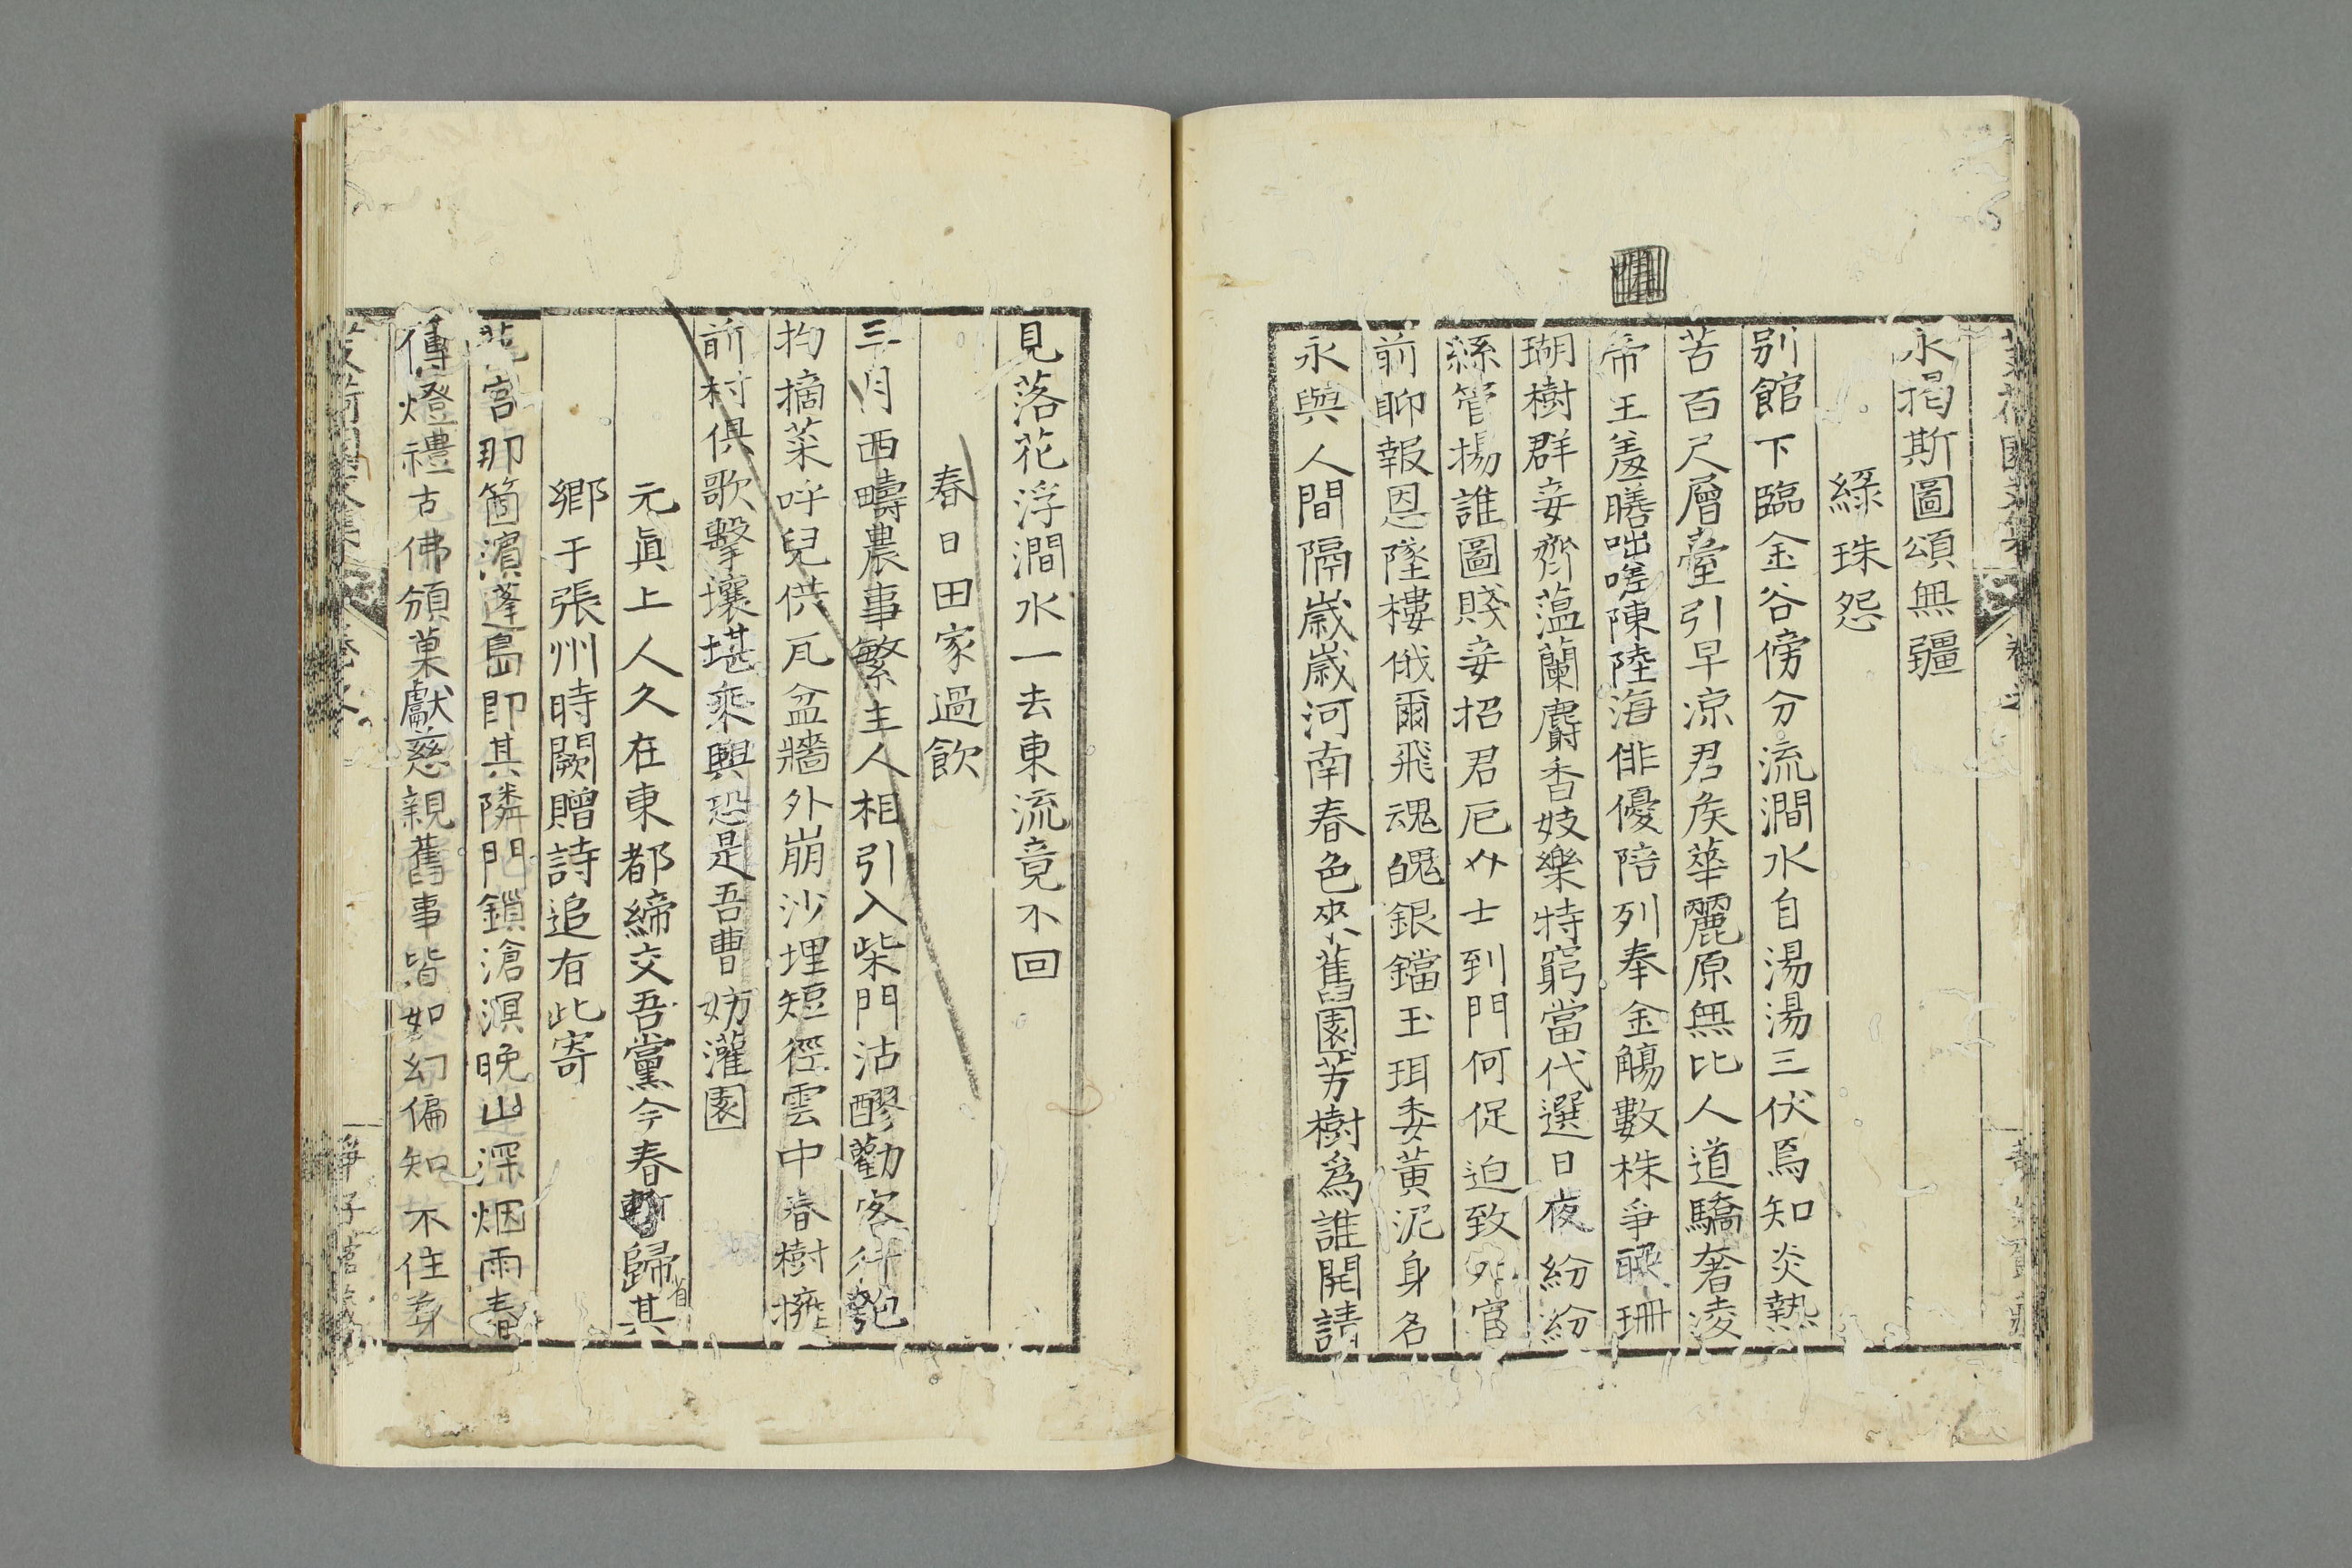 永揭斯圖頌無疆
綠珠怨
別館下臨金谷傍分流澗水自湯湯三伏焉知炎熱
苦百尺層臺引早涼君矦華麗原無比人道驕奢凌
帝王羞膳咄嗟陳陸海俳優陪列奉金觴數株爭聸珊
瑚樹群妾齊薀蘭麝香妓樂特窮當代選日夜紛紛
絲管揚誰圖賤妾招君厄𠦄士到門何促迫致外官
前聊報恩墜樓俄爾飛魂魄銀鐺玉珥委黃泥身名
永與人間隔歲歲河南春色來舊園芳樹爲誰開請
見落花浮澗水一去東流竟不回
春日田家過飲
三月西疇農事繁主人相引入柴門沽醪勸客行匏
杓摘菜呼兒供瓦盆牆外崩沙埋短徑雲中春樹擁
前村俱歌擊壤堪乘興恐是吾曹妨灌園
元眞上人久在東都締交吾黨今春暫歸省其
鄉于張州時闕贈詩追有此寄
梵宮那箇濱蓬島即其隣門鎖滄溟晚山深烟雨春
傳燈禮古佛頒菓獻慈親舊事皆如幻偏知不住身